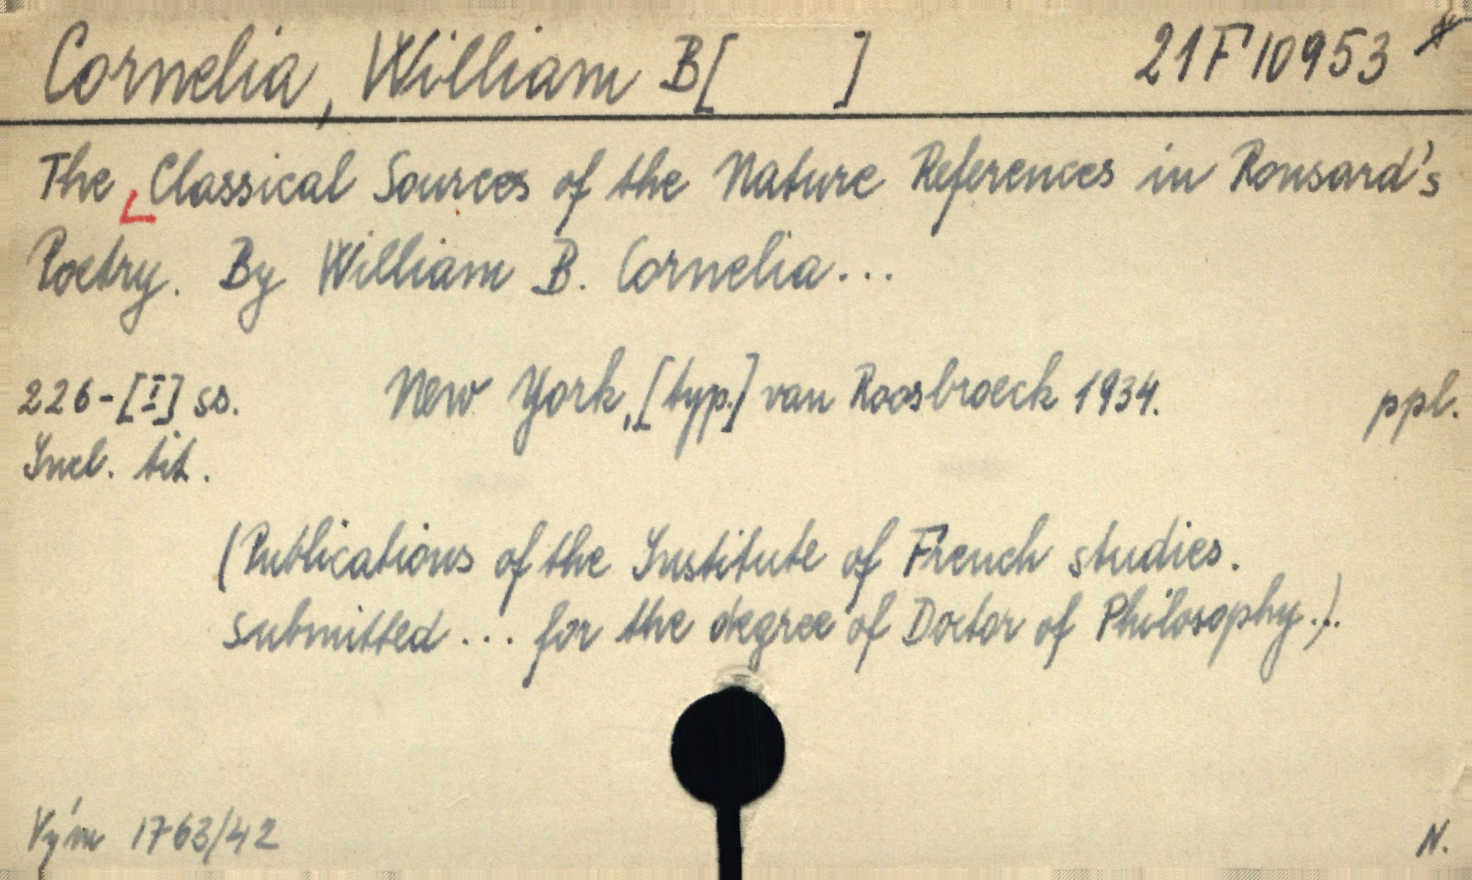 Cornelia, William B[ ] 21F10953 *
The Classical Sources of the Nature References in Ronsard's
Poetry. By William B. Cornelia...
226-[I] ss. New York, [typ.] van Roosbroeck 1934. ppl.
Incl. tit.
(Publications of the Institute of French studies.
Submitted... for the degree of Doctor of Philosophy.).
Vým 1763/42 N.